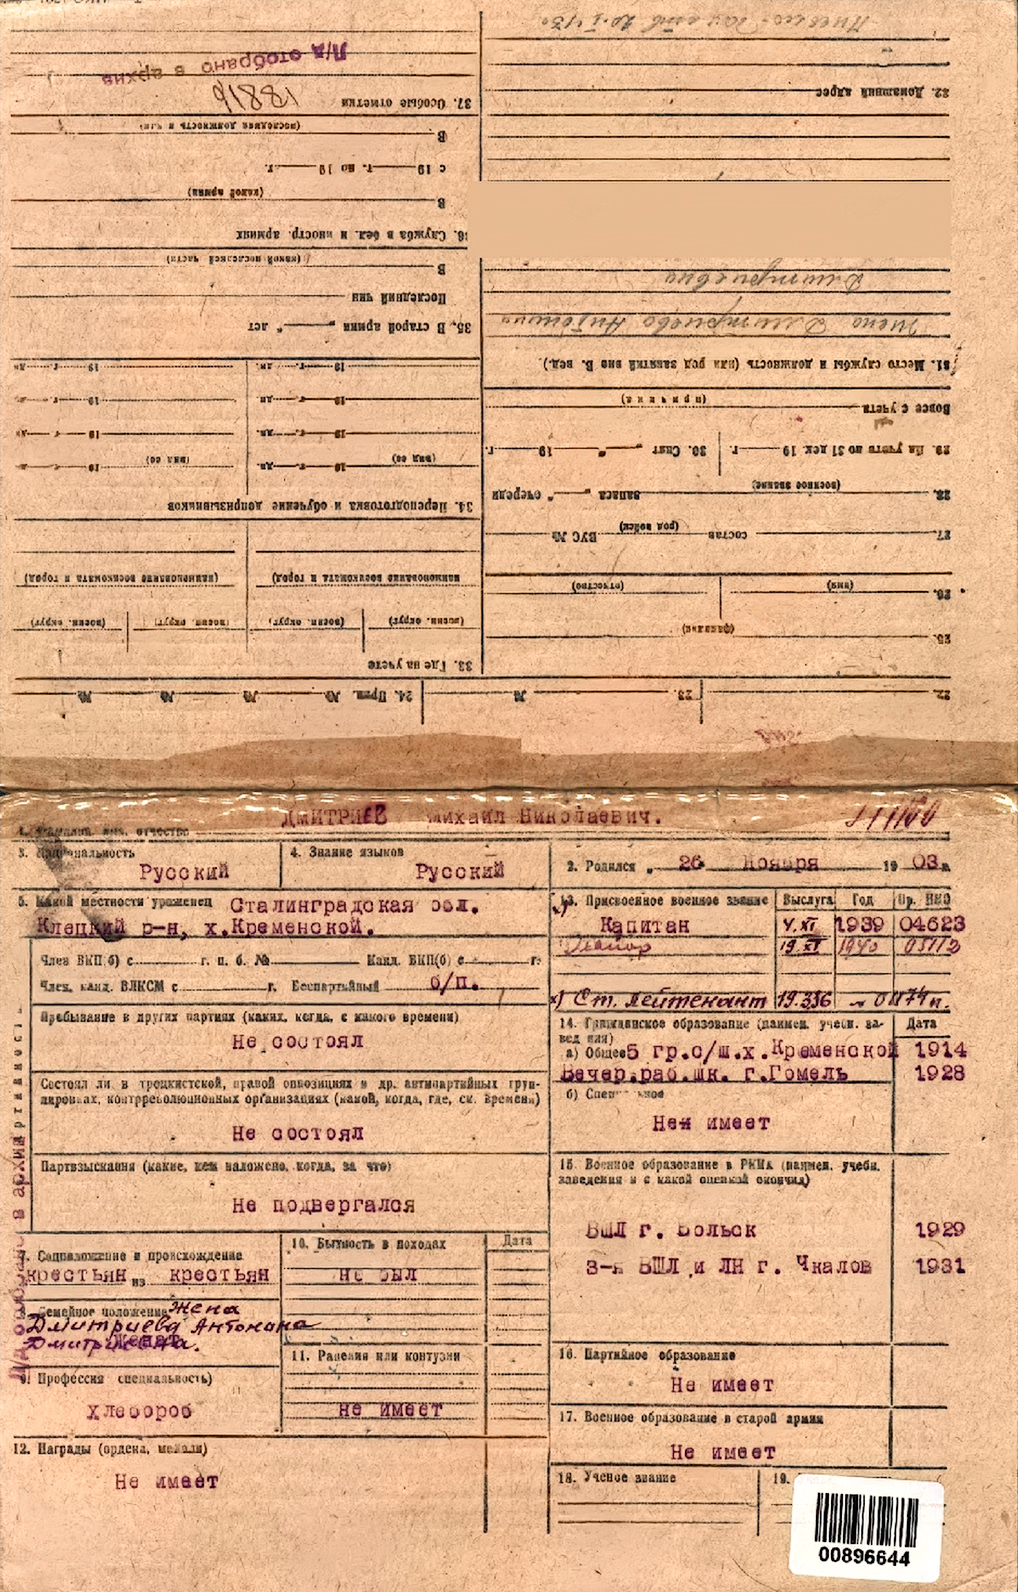 Письмо
22. Домашний адрес
Дмитриевна
Жена Дмитриева Антонина
31. Место службы и должность (или род занятий вне В. вед.)
Вовсе с учета
(причина)
29. На учете до 31 дек. 19 г.
30. Снят „ “ 19 г.
28.
(военное звание)
запаса „ “ очереди
27. состав
(род войск)
ВУС №
26.
(имя)
(отчество)
25.
(фамилия)
Л/д отобрано в архив
37. Особые отметки 18816
В
(последняя должность и чин)
с 19 г. по 19 г.
В
(какой армии)
36. Служба в бел. и иностр. армиях
В
(какой последней части)
Последний чин
35. В старой армии „ “ лет
19 г. дн. 19 г. дн.
19 г. дн. 19 г. дн.
19 г. дн. 19 г. дн.
(вид со) 19 г. дн. (вид со) 19 г. дн.
34. Переподготовка и обучение допризывников
(наименование военкомата и город) (наименование военкомата и город)
(воен. округ) (воен. округ) (воен. округ) (воен. округ)
33. Где на учете
22. 23. № 24. Прип. № № № №
ДМИТРИЕВ Михаил Николаевич.
1. Фамилия, имя, отчество
3. Национальность
Русский
4. Знание языков
Русский
2. Родился „ 26 Ноября 19 03 г.
5. Какой местности уроженец Сталинградская обл.
Клецкий р-н, х.Кременской.
Член ВКП(б) с г. п. б. № Канд. ВКП(б) с г.
Член, канд. ВЛКСМ с г. Беспартийный б/п.
Пребывание в других партиях (каких, когда, с какого времени)
Не состоял
Состоял ли в троцкистской, правой оппозициях и др. антипартийных груп-
пировках, контрреволюционных организациях (какой, когда, где, с к. времени)
Не состоял
Партвзыскания (какие, кем наложено, когда, за что)
Не подвергался
Л/д отобрано в архив
7. Соцположение и происхождение
крестьян из крестьян
8. Семейное положение Жена
Дмитриева Антонина
Дмитриевна.
Женат
9. Профессия (специальность)
хлебороб
10. Бытность в походах
Дата
не был
11. Ранения или контузии
не имеет
12. Награды (ордена, медали)
Не имеет
13. Присвоенное военное звание Выслуга Год Пр. НКО
Капитан 4.XI 1939 04623
Майор 19.XI 1940
х) Ст. лейтенант 19.3.36
14. Гражданское образование (наимен. учебн. за-
ведения)
Дата
а) Общее 5 гр.с/ш.х.Кременской 1914
Вечер.раб.шк. г.Гомель 1928
б) Специальное
Не имеет
15. Военное образование в РККА (наимен. учебн.
заведения и с какой оценкой окончил)
ВШЛ г. Вольск 1929
3-я ВШЛ и ЛН г. Чкалов 1931
16. Партийное образование
Не имеет
17. Военное образование в старой армии
Не имеет
18. Ученое звание
19.
00896644